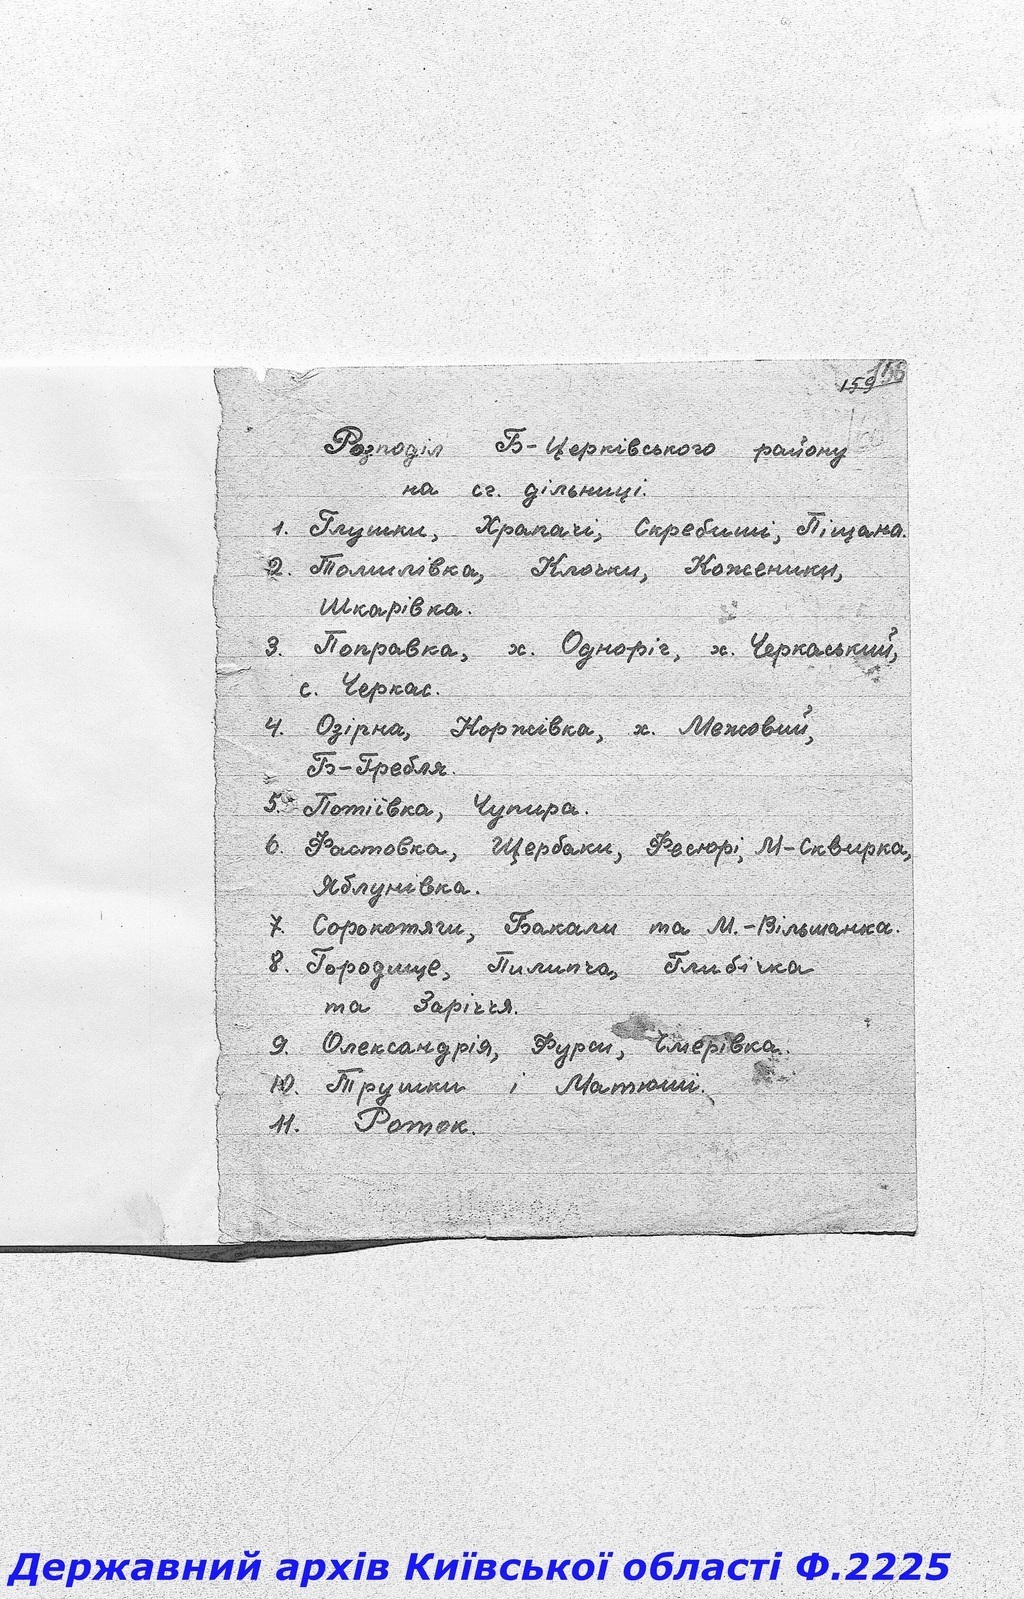 159 158
Розподіл Б-Церківського району
на сг. дільниці.
1. Глушки, Храпачі, Скребиші, Піщана.
2. Томилівка, Клочки, Коженики,
Шкарівка.
3. Поправка, х. Одноріг, х. Черкаський,
с. Черкас.
4. Озірна, Коржівка, х. Межовий,
Б-Гребля.
5. Потіївка, Чупира.
6. Фастовка, Щербаки, Фесюрі, М-Сквирка,
Яблунівка.
7. Сорокотяги, Бакали та М.-Вільшанка.
8. Городище, Пилипча, Глибічка
та Заріччя.
9. Олександрія, Фурси, Чмерівка.
10. Трушки і Матюші.
11. Роток.
Державний архів Київської області Ф.2225